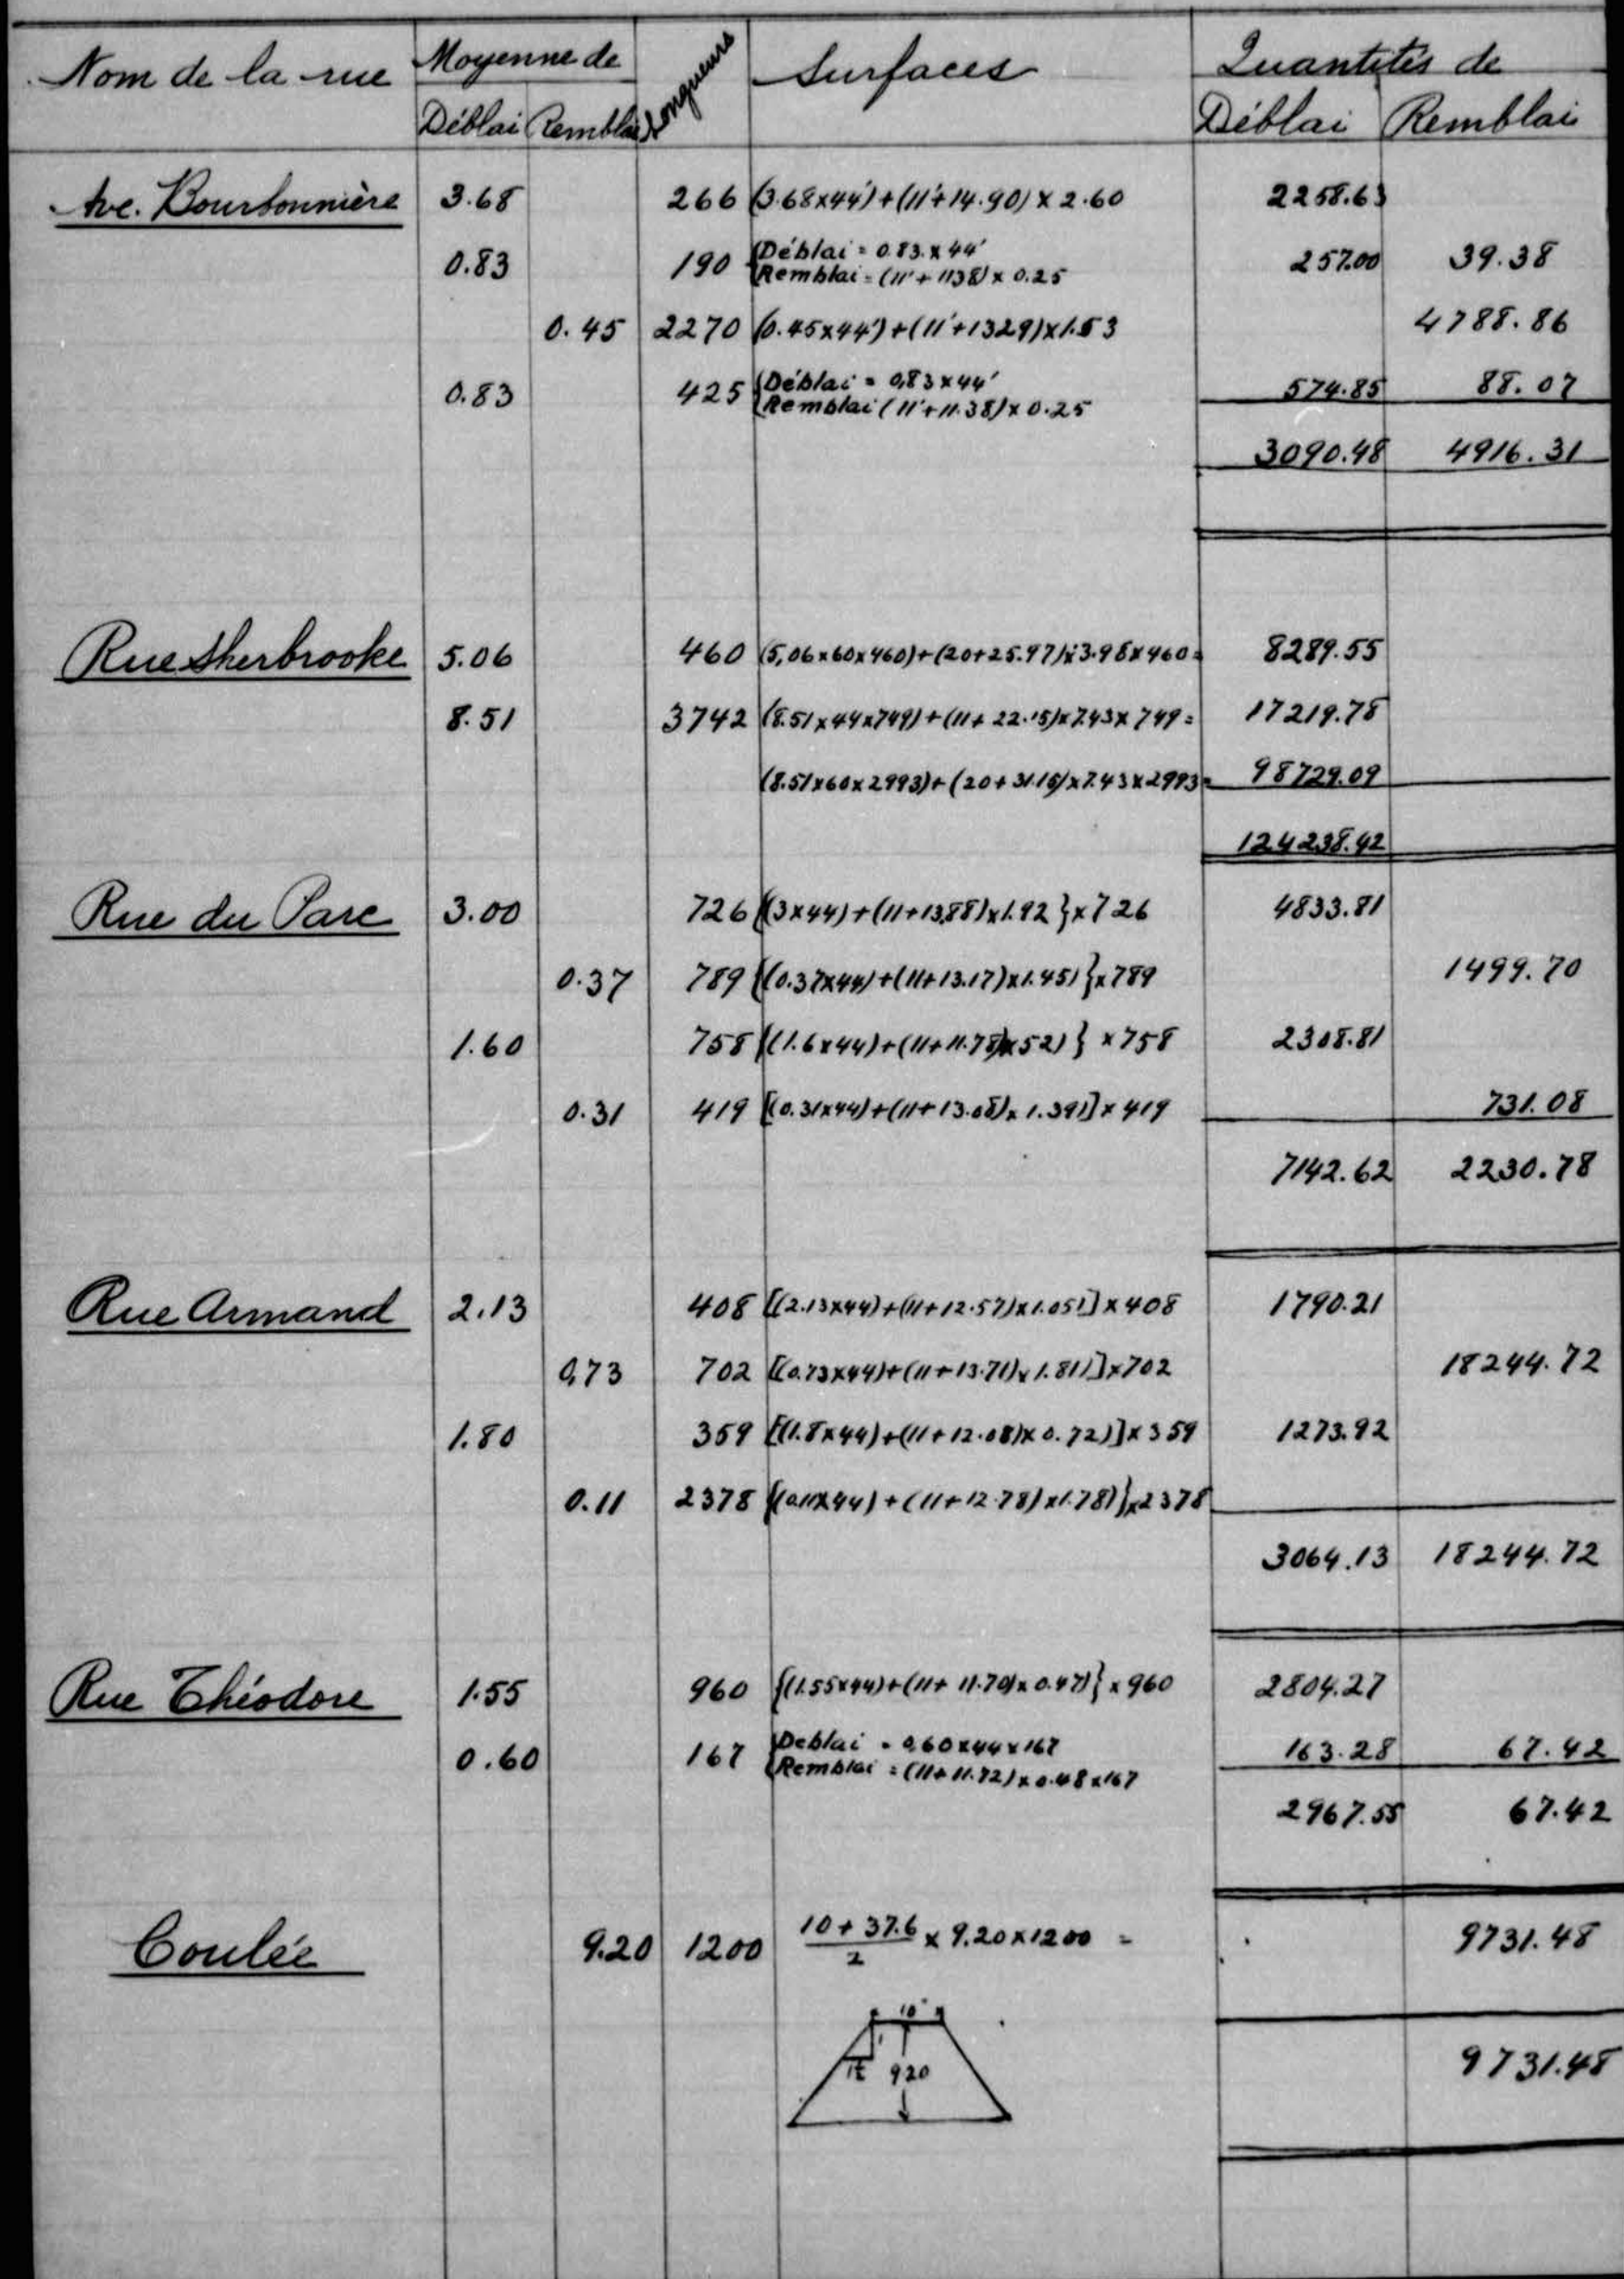 Nom de la rue Moyenne de Longueurs Surfaces Quantités de
Déblai Remblai Déblai Remblai
Ave. Bourbonnière 3.68 266 (3.68x44')+(11'+14.90) x 2.60 2258.63
0.83 190 {Déblai = 0.83 x 44' 257.00 39.38
Remblai = (11'+1138) x 0.25
0.45 2270 (0.45x44')+(11'+1329)x1.53 4788.86
0.83 425 {Déblai = 0,83 x 44' 574.85 88.07
Remblai (11'+11.38) x 0.25
3090.48 4916.31
Rue Sherbrooke 5.06 460 (5,06x60x460)+(20+25.97)x3.98x460= 8289.55
8.51 3742 (8.51x44x749)+(11+22.15)x7.43x749= 17219.78
(8.51x60x2993)+(20+31.15)x7.43x2993= 98729.09
124238.42
Rue du Parc 3.00 726 {(3x44)+(11+13,88)x1.92}x726 4833.81
0.37 789 {(0.37x44)+(11+13.17)x1.45)}x789 1499.70
1.60 758 {(1.6x44)+(11+11.78)x52)} x758 2308.81
0.31 419 [(0.31x44)+(11+13.08)x1.39)]x419 731.08
7142.62 2230.78
Rue Armand 2.13 408 [(2.13x44)+(11+12.57)x1.05)]x408 1790.21
0,73 702 [(0.73x44)+(11+13.71)x1.81)]x702 18244.72
1.80 359 [(1.8x44)+(11+12.08)x0.72)]x359 1273.92
0.11 2378 {(0.11x44)+(11+12.78)x1.78)}x2378
3064.13 18244.72
Rue Théodore 1.55 960 {(1.55x44)+(11+11.70)x0.47)}x960 2804.27
0.60 167 {Deblai = 0,60x44x167 163.28 67.42
Remblai = (11+11.72)x0.48x167
2967.55 67.42
Coulée 9.20 1200 10+37.6/2 x 9.20x1200 = 9731.48
10'
1
920
9731.48